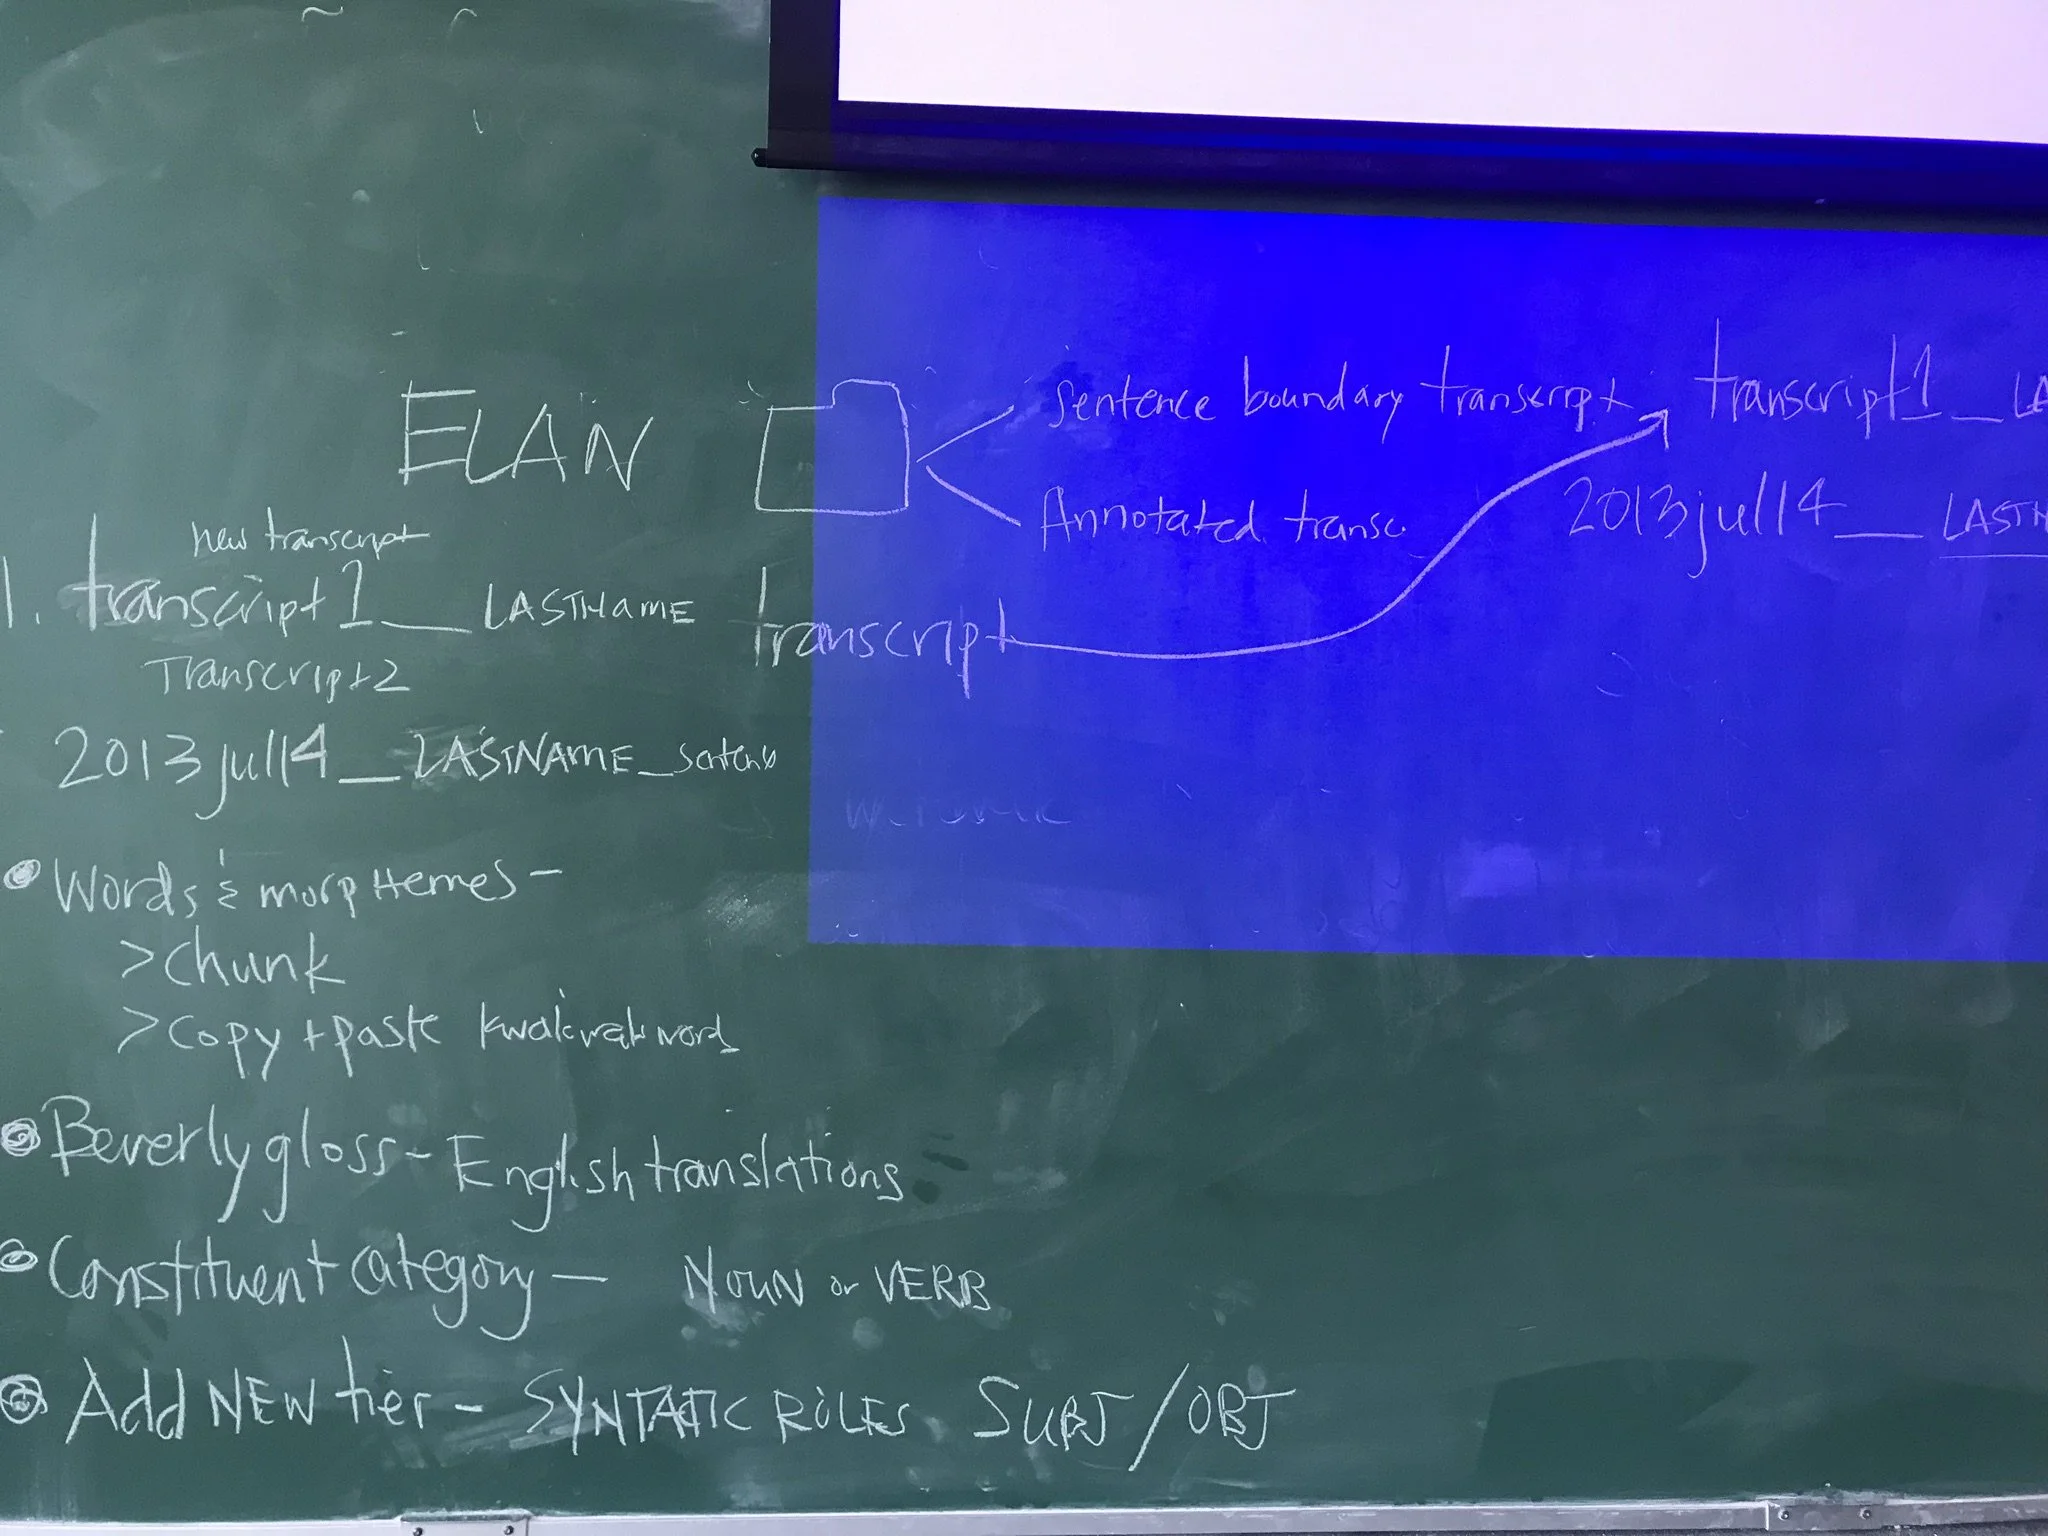 ELAN
Sentence boundary transcript
Annotated transc.
transcript1_LA
2013jul14_LASTN
new transcript
1. transcript1_LASTNAME
transcript
Transcript2
2013jul14_LASTNAME_
• Words & morpHemes -
> chunk
> copy + paste kwakwak word
• Beverly gloss - English translations
• Constituent category - NOUN or VERB
• Add NEW tier - SYNTATIC ROLES SUBJ/OBJ